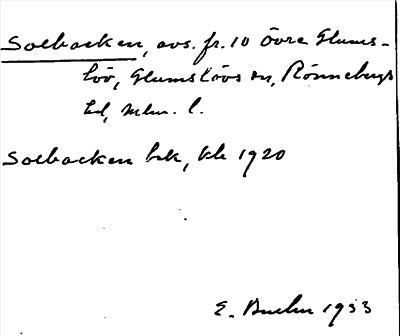 Solbacken, avs. fr. 10 Övre Glums-
löv, Glumslövs sn, Rönnebergs
hd, Mlm. l.
Solbacken lrk, kk 1920
E. 1933